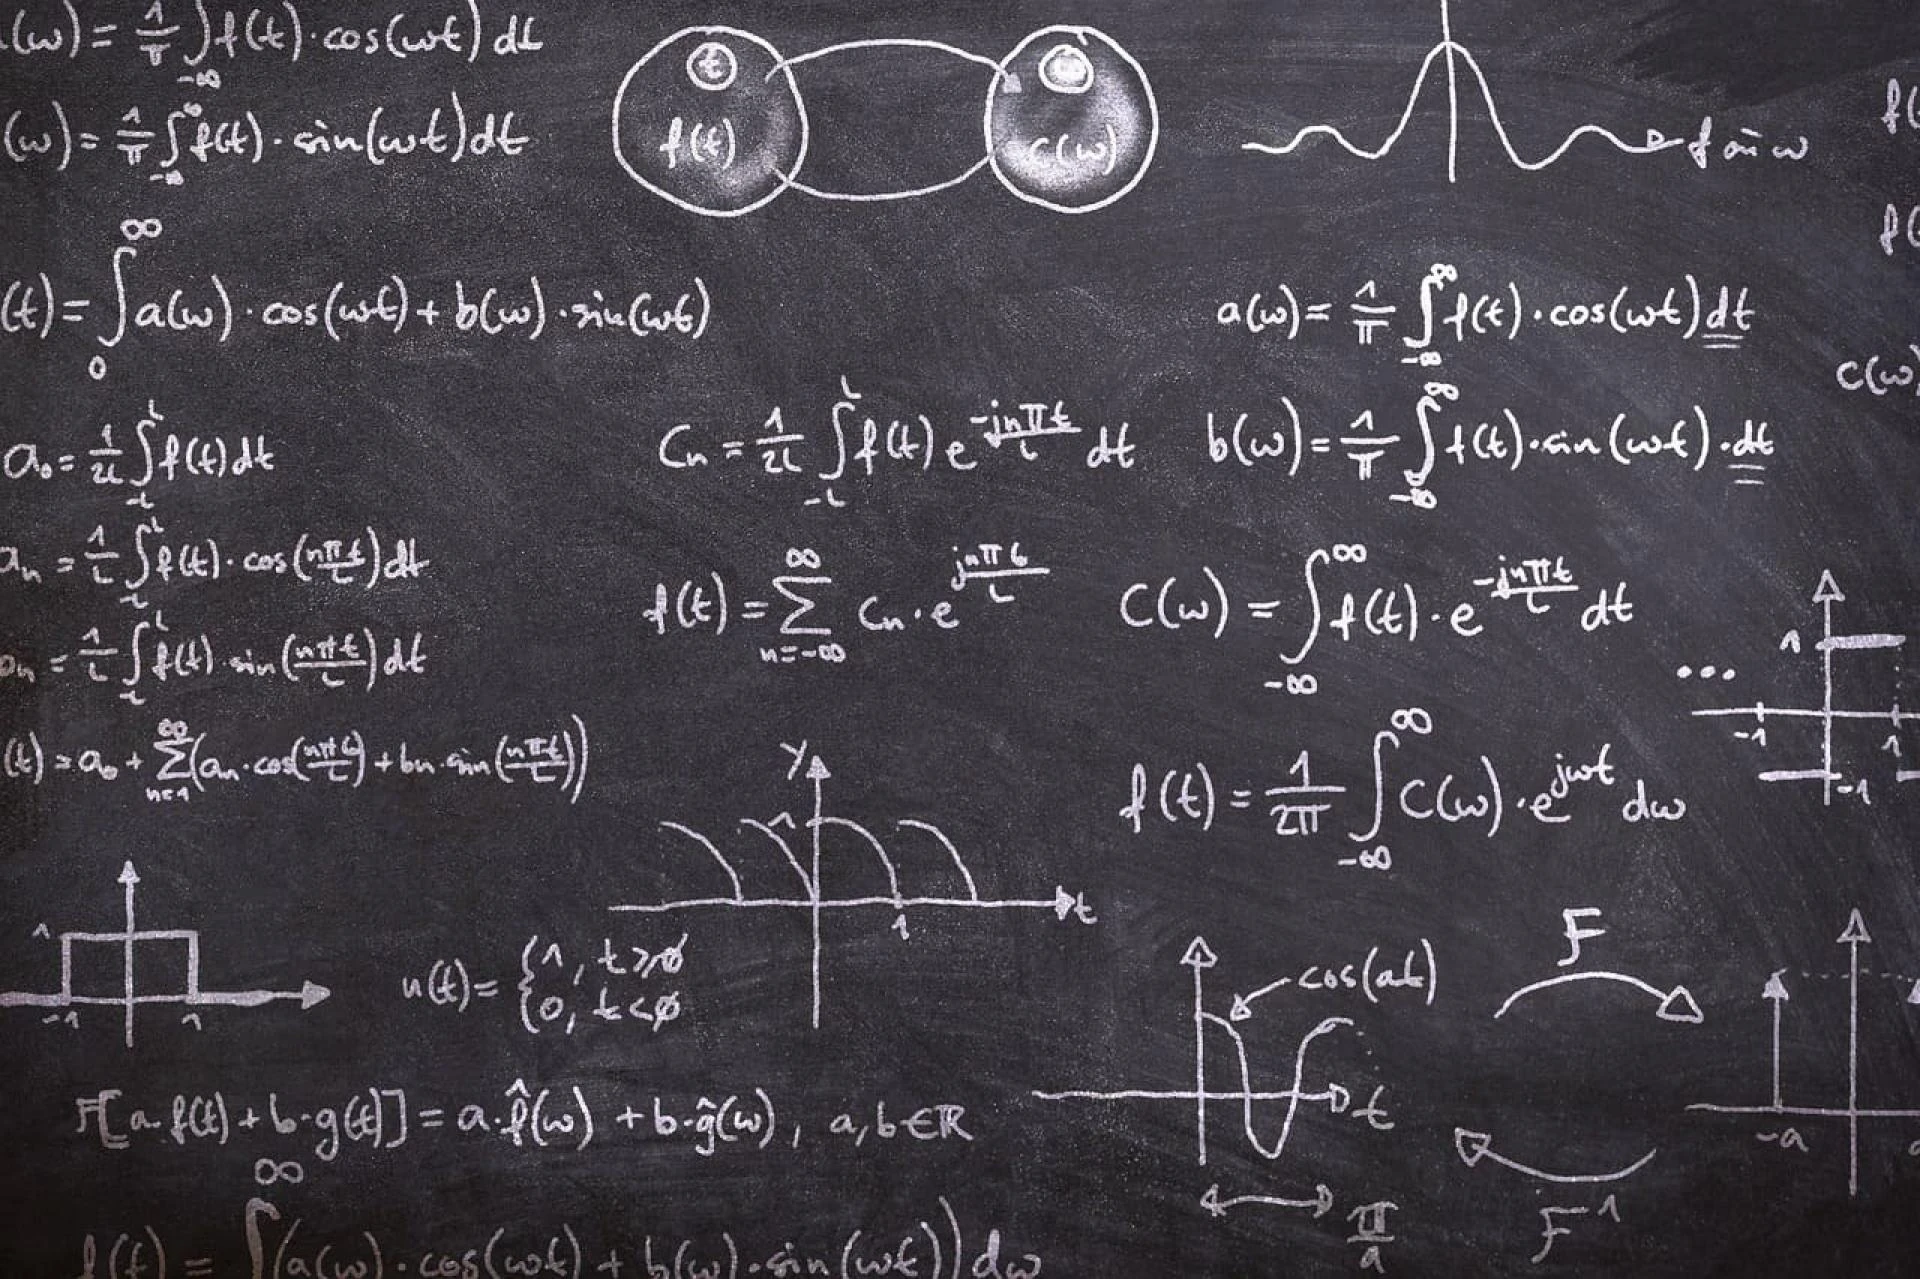 (ω) = 1/π ∫_{-∞} f(t)·cos(ωt) dt
(ω) = 1/π ∫_{-∞}^{∞} f(t)·sin(ωt) dt
t
f(t)
ω
c(ω)
f ~ ω
f(
f(
(t) = ∫_0^∞ a(ω)·cos(ωt) + b(ω)·sin(ωt)
a(ω) = 1/π ∫_{-∞}^{∞} f(t)·cos(ωt) dt
C(ω)
a₀ = 1/2L ∫_{-L}^{L} f(t) dt
Cn = 1/2L ∫_{-L}^{L} f(t) e^{-jnπt/L} dt
b(ω) = 1/π ∫_{-∞}^{∞} f(t)·sin(ωt)·dt
an = 1/L ∫_{-L}^{L} f(t)·cos(nπt/L) dt
f(t) = ∑_{n=-∞}^{∞} Cn·e^{jnπt/L}
C(ω) = ∫_{-∞}^{∞} f(t)·e^{-jnπt/L} dt
bn = 1/L ∫_{-L}^{L} f(t)·sin(nπt/L) dt
1
...
-1
1
-1
(t) = a₀ + ∑_{n=1}^{∞} (an·cos(nπt/L) + bn·sin(nπt/L))
f(t) = 1/2π ∫_{-∞}^{∞} C(ω)·e^{jωt} dω
y
1
t
1
1
-1
1
u(t) = {1, t≥0
0, t<0
cos(at)
t
π/a
F
F⁻¹
-a
F[a·f(t) + b·g(t)] = a·f̂(ω) + b·ĝ(ω), a,b∈ℝ
f(t) = ∫^∞ (a(ω)·cos(ωt) + b(ω)·sin(ωt)) dω